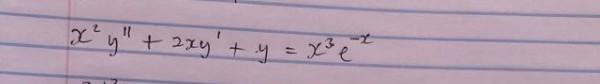 x² y'' + 2xy' + y = x³ e⁻ˣ